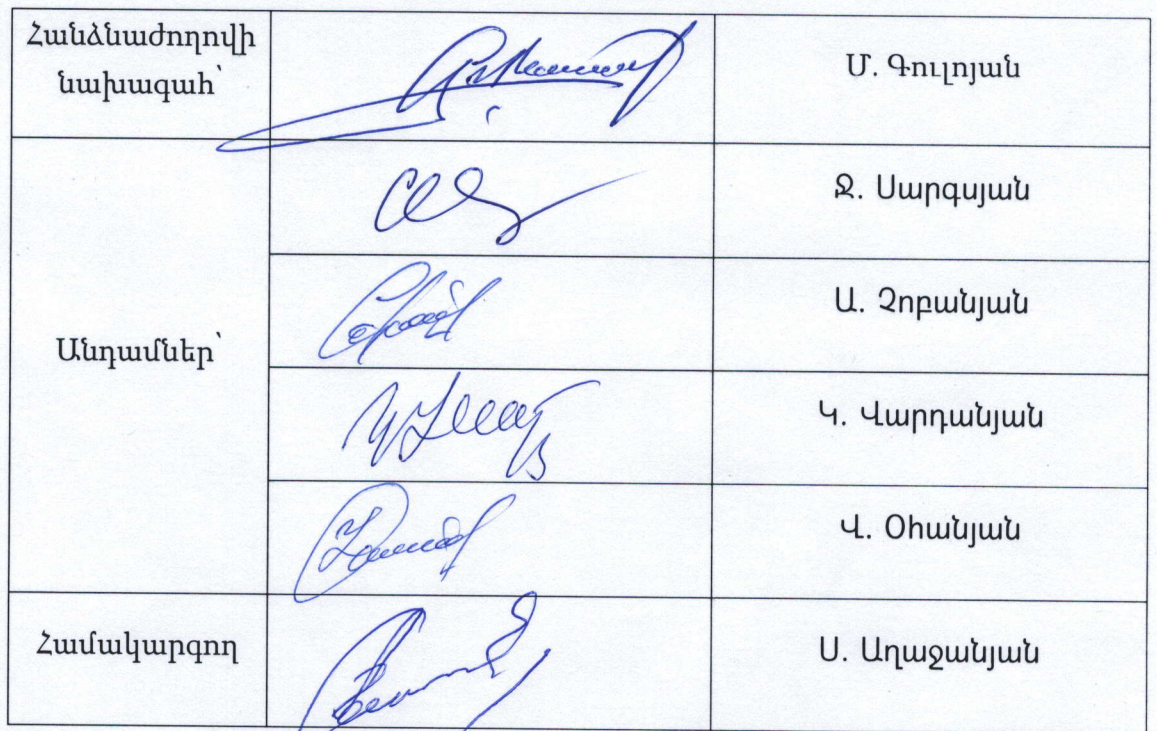 Հանձնաժողովի
նախագահ՝
Մ. Գուլոյան
Ջ. Սարգսյան
Անդամներ՝
Ա. Չոբանյան
Կ. Վարդանյան
Վ. Օհանյան
Համակարգող
Ս. Աղաջանյան